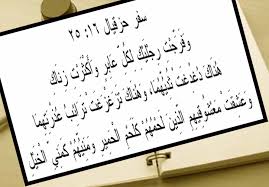 سفر حزقيال ١٦: ٢٥
وَفَرَّجْتِ رِجْلَيْكِ لِكُلِّ عَابِرٍ وَأَكْثَرْتِ زِنَاكِ
هُنَاكَ دُغْدِغَتْ ثُدِيُّهُمَا، وَهُنَاكَ تَزَغْزَغَتْ تَرَائِبُ عُذْرَتِهِمَا
وَعَشِقَتْ مَعْشُوقِيهِمِ الَّذِينَ لَحْمُهُمْ كَلَحْمِ الْحَمِيرِ وَمَنِيُّهُمْ كَمَنِيِّ الْخَيْلِ